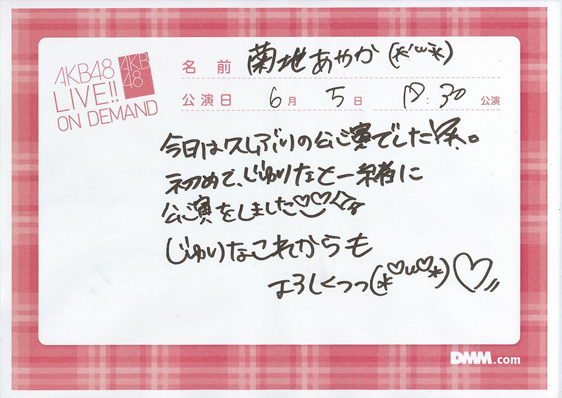 AKB48
LIVE!!
ON DEMAND
AKB
48
名前 菊地あやか(*'ω'*)
公演日 6月 5日 18:30 公演
今日は久しぶりの公演でした笑。
初めて、じゅりなと一緒に
公演をしました♡♡
じゅりなこれからも
よろしくっっ(*♡ω♡*)♡
DMM.com